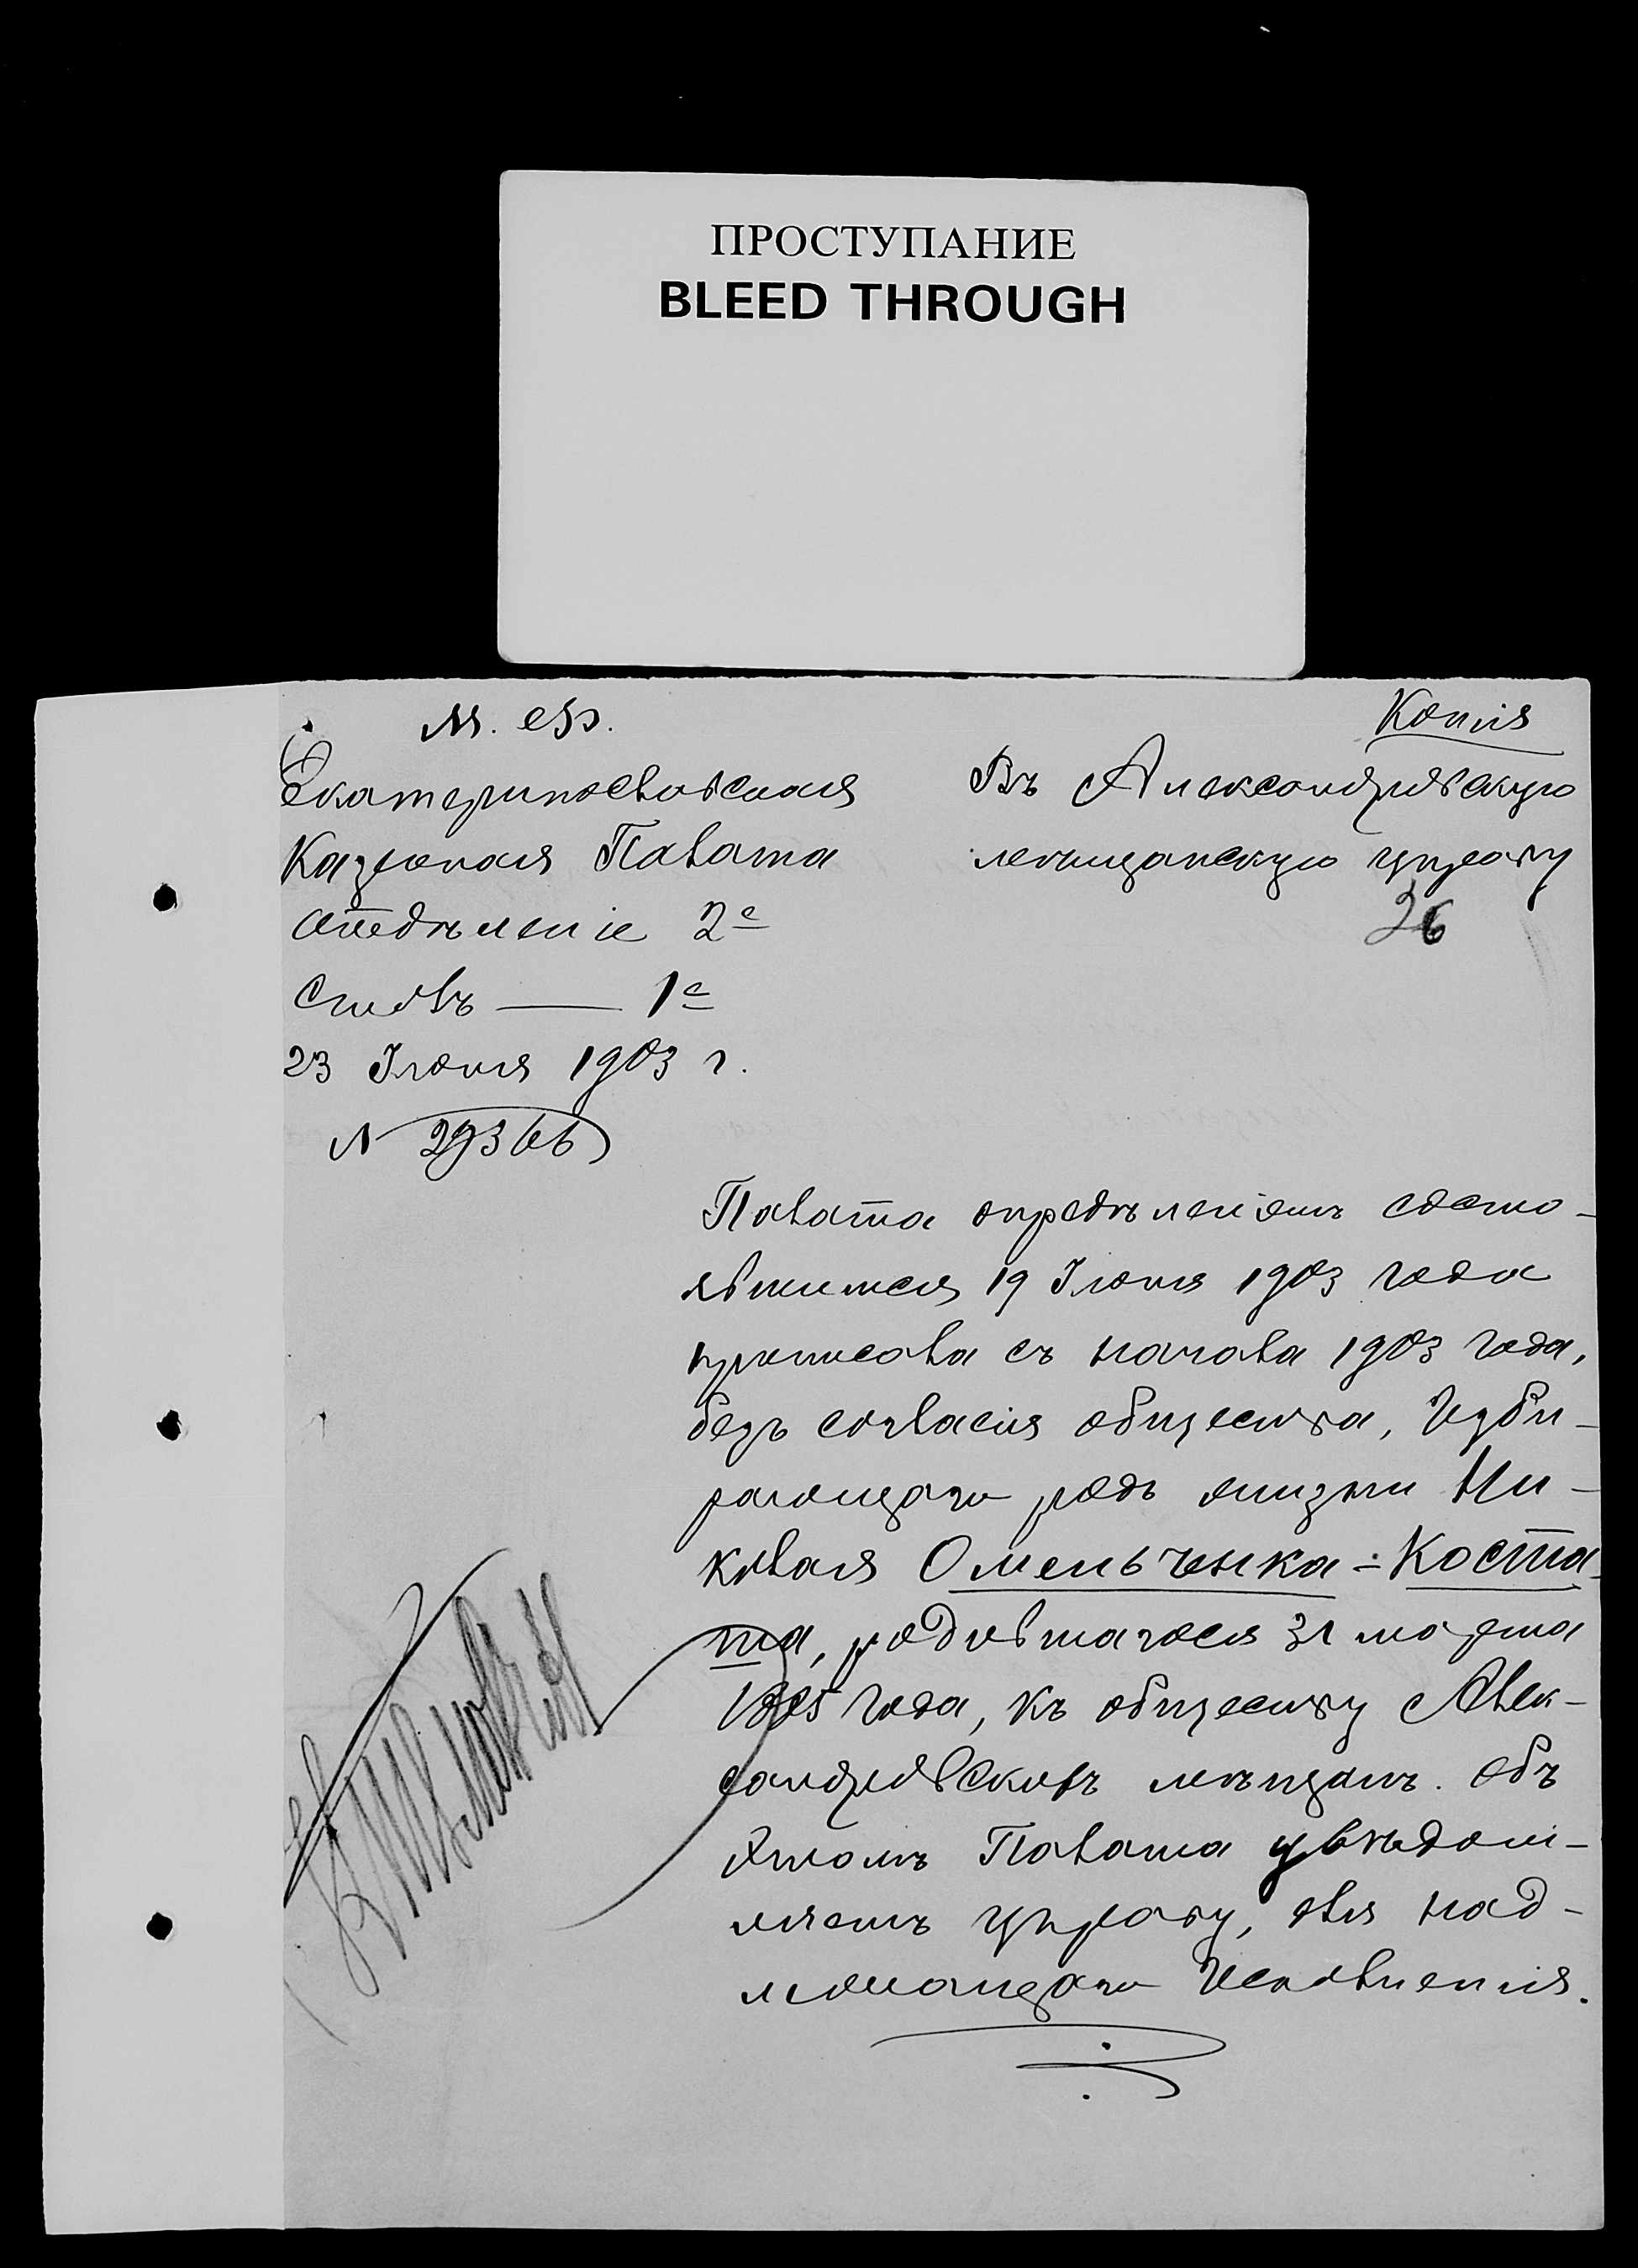 ПРОСТУПАНИЕ
BLEED THROUGH
Копія
М. Ф.
Екатеринославская
Казенная Палата
Отдѣленіе 2е
Столъ — 1е
23 Іюня 1903 г.
N 29366
Въ Александровскую
мѣщанскую управу
26
Палата опредѣленіемъ состо-
явшимся 19 Іюня 1903 года
приписала съ начала 1903 года,
безъ согласія общества, Изби-
рающаго родъ жизни Ни-
колая Омельченка-Коста-
та, родившагося 31 марта
1885 года, къ обществу Алек-
сандровскихъ мѣщанъ. Объ
этомъ Палата увѣдом-
ляетъ управу, для над-
лежащаго Исполненія.